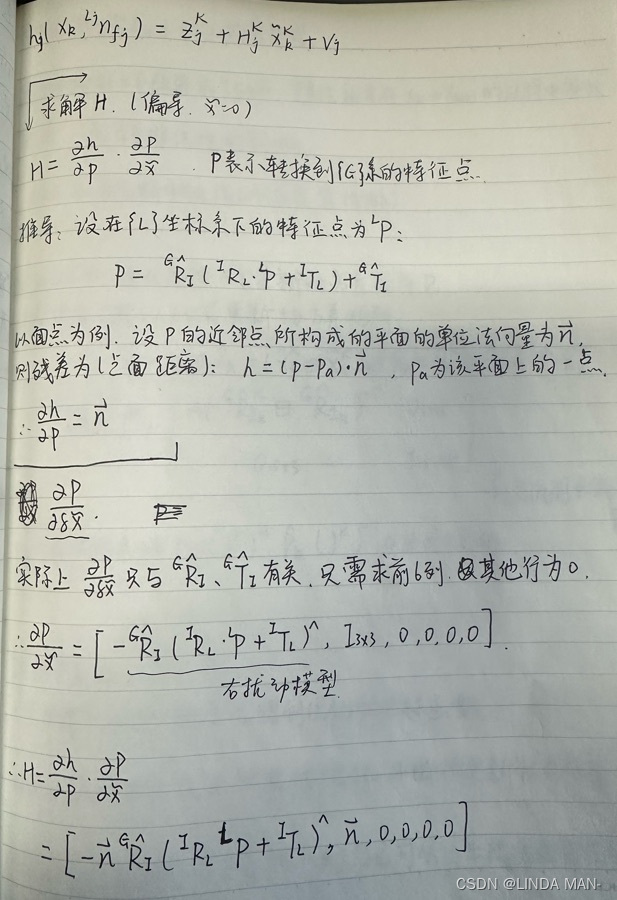 hj(xk, Ljnfj) = zjK + HjK x̃kK + vj
求解H. (偏导. x̃=0)
H = ∂h/∂p · ∂p/∂x̃ . P表示转换到{G}系的特征点.
推导: 设在{L}坐标系下的特征点为LP:
P = GR̂I (IRL·LP + ITL) + GT̂I
以面点为例. 设P的近邻点所构成的平面的单位法向量为n⃗,
则残差为(点面距离): h = (P-Pa)·n⃗ , Pa为该平面上的一点.
∴ ∂h/∂P = n⃗
∂P/∂δx̃ . P=
实际上 ∂P/∂δx̃ 只与 GR̂I、GT̂I 有关. 只需求前6列. 其他行为0.
∴ ∂P/∂x̃ = [-GR̂I (IRL·LP + ITL)^, I3x3, 0, 0, 0, 0].
右扰动模型.
∴H = ∂h/∂P · ∂P/∂x̃
= [-n⃗ GR̂I (IRL LP + ITL)^, n⃗, 0, 0, 0, 0]
CSDN @LINDA MAN-